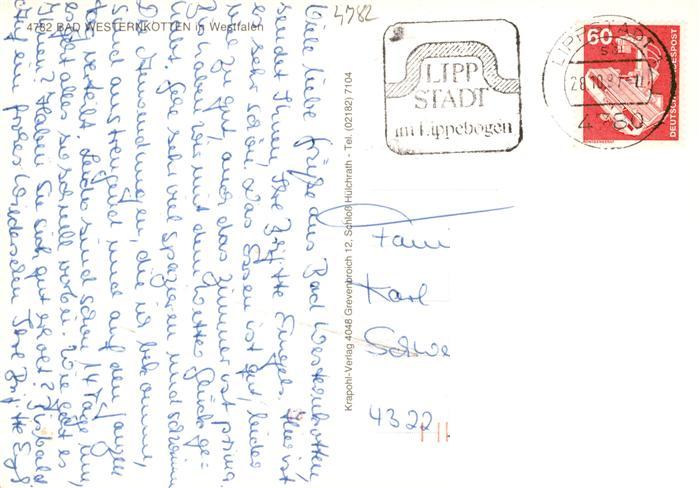 4782
4782 BAD WESTERNKOTTEN in Westfalen
LIPP
STADT
am Lippebogen
LIPPSTADT
28.10.
60
DEUTSCHE BUNDESPOST
Krapohl-Verlag 4048 Grevenbroich 12, Schloß Hülchrath - Tel. (02182) 7104
Viele liebe Grüße aus Bad Westernkotten,
sendet Ihnen, Ihre Brigitte Engels. Hier ist
es sehr schön. Das Essen ist gut, leider
zu gut, auch das Zimmer ist prima.
haben wir mit dem Wetter Glück ge-
habt. Gehe sehr viel spazieren und schwimmen
D. Anwendungen, die ich bekomme,
sind anstrengend und auf den ganzen
Tag verteilt. Leider sind schon 14 Tage um,
geht alles so schnell vorbei. Wie geht es
Ihnen? Haben Sie sich gut erholt?
Auf ein frohes Wiedersehen Ihre Brigitte
Fam
Karl
Schwe
4322